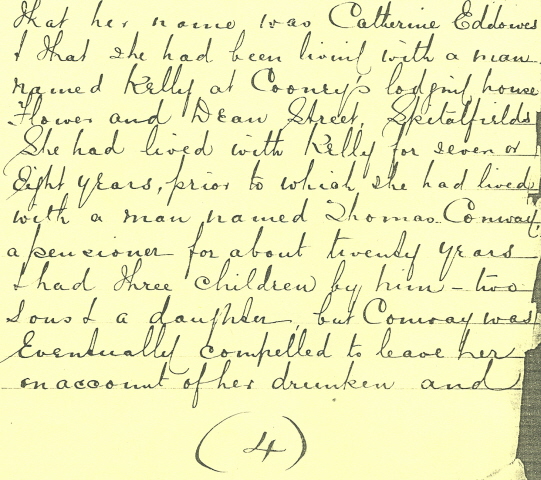 that her name was Catherine Eddowes
& that she had been living with a man
named Kelly at Cooney's lodging house
Flower and Dean Street, Spitalfields
She had lived with Kelly for seven or
Eight years, prior to which she had lived
with a man named Thomas Conway,
a pensioner for about twenty years
& had three children by him - two
sons & a daughter, but Conway was
Eventually compelled to leave her
on account of her drunken and
(4)